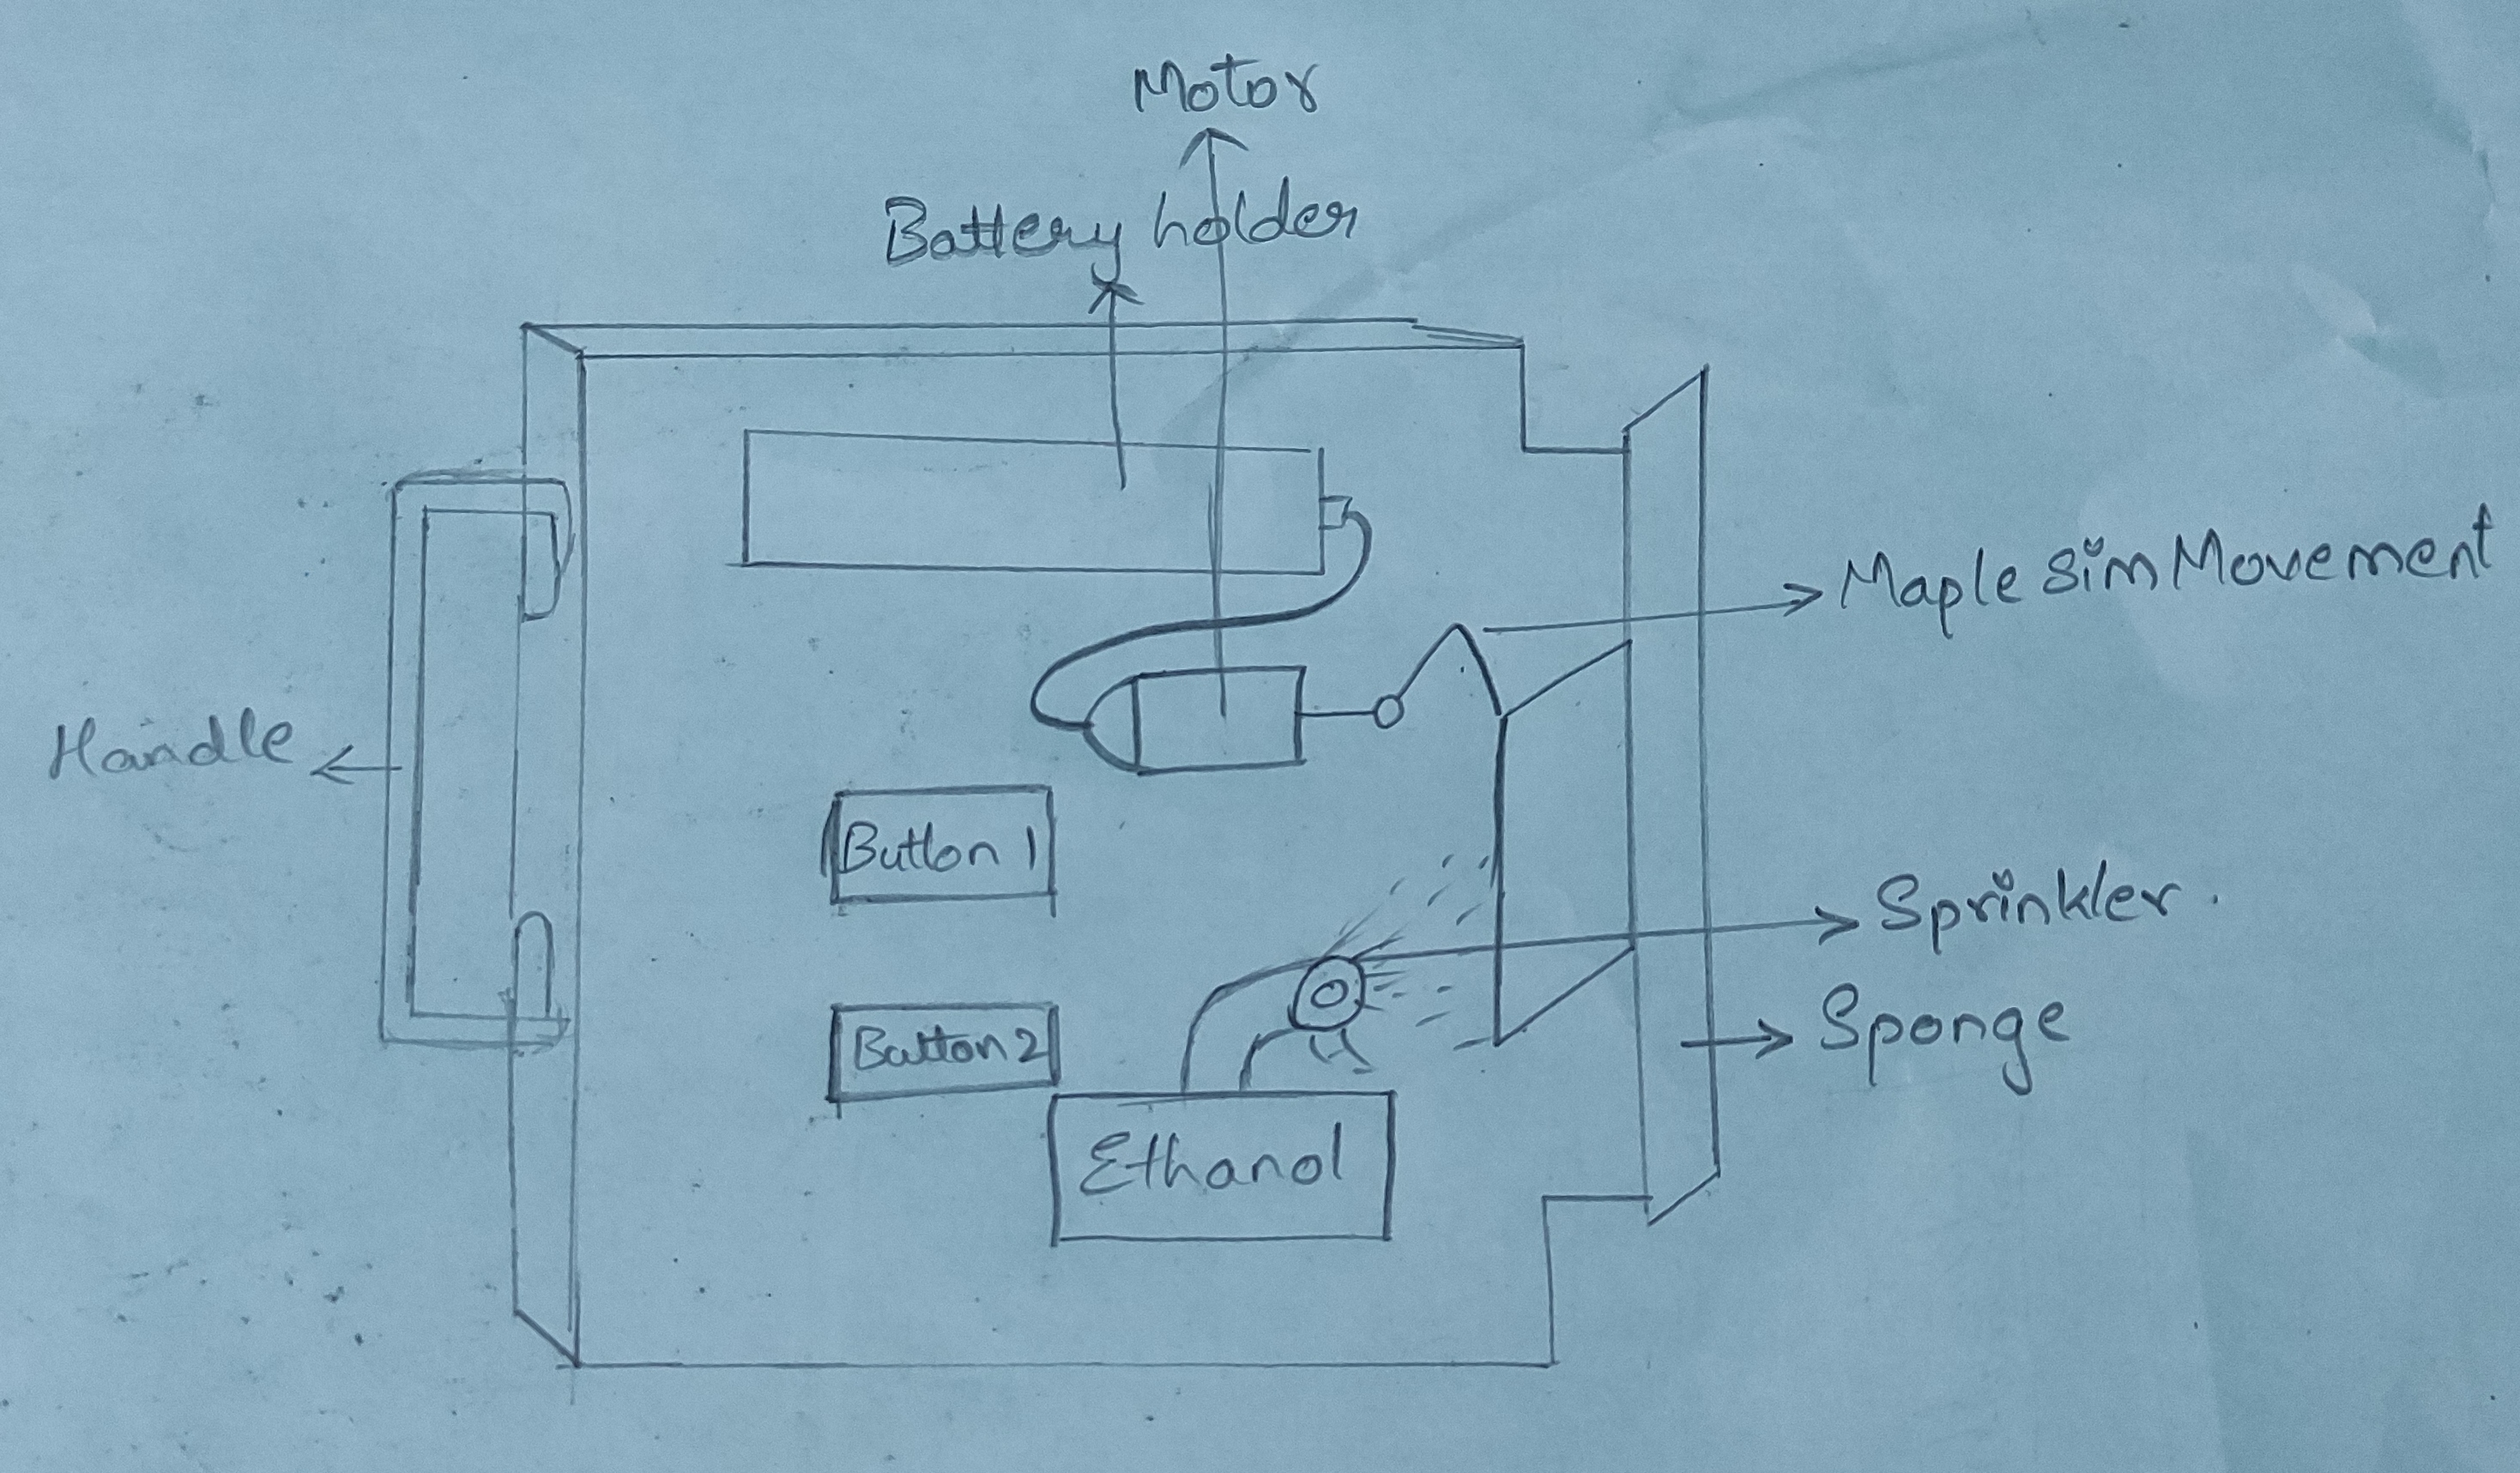 Motor
Battery holder
Maple sim Movement
Handle
Button 1
Sprinkler.
Button 2
Sponge
Ethanol